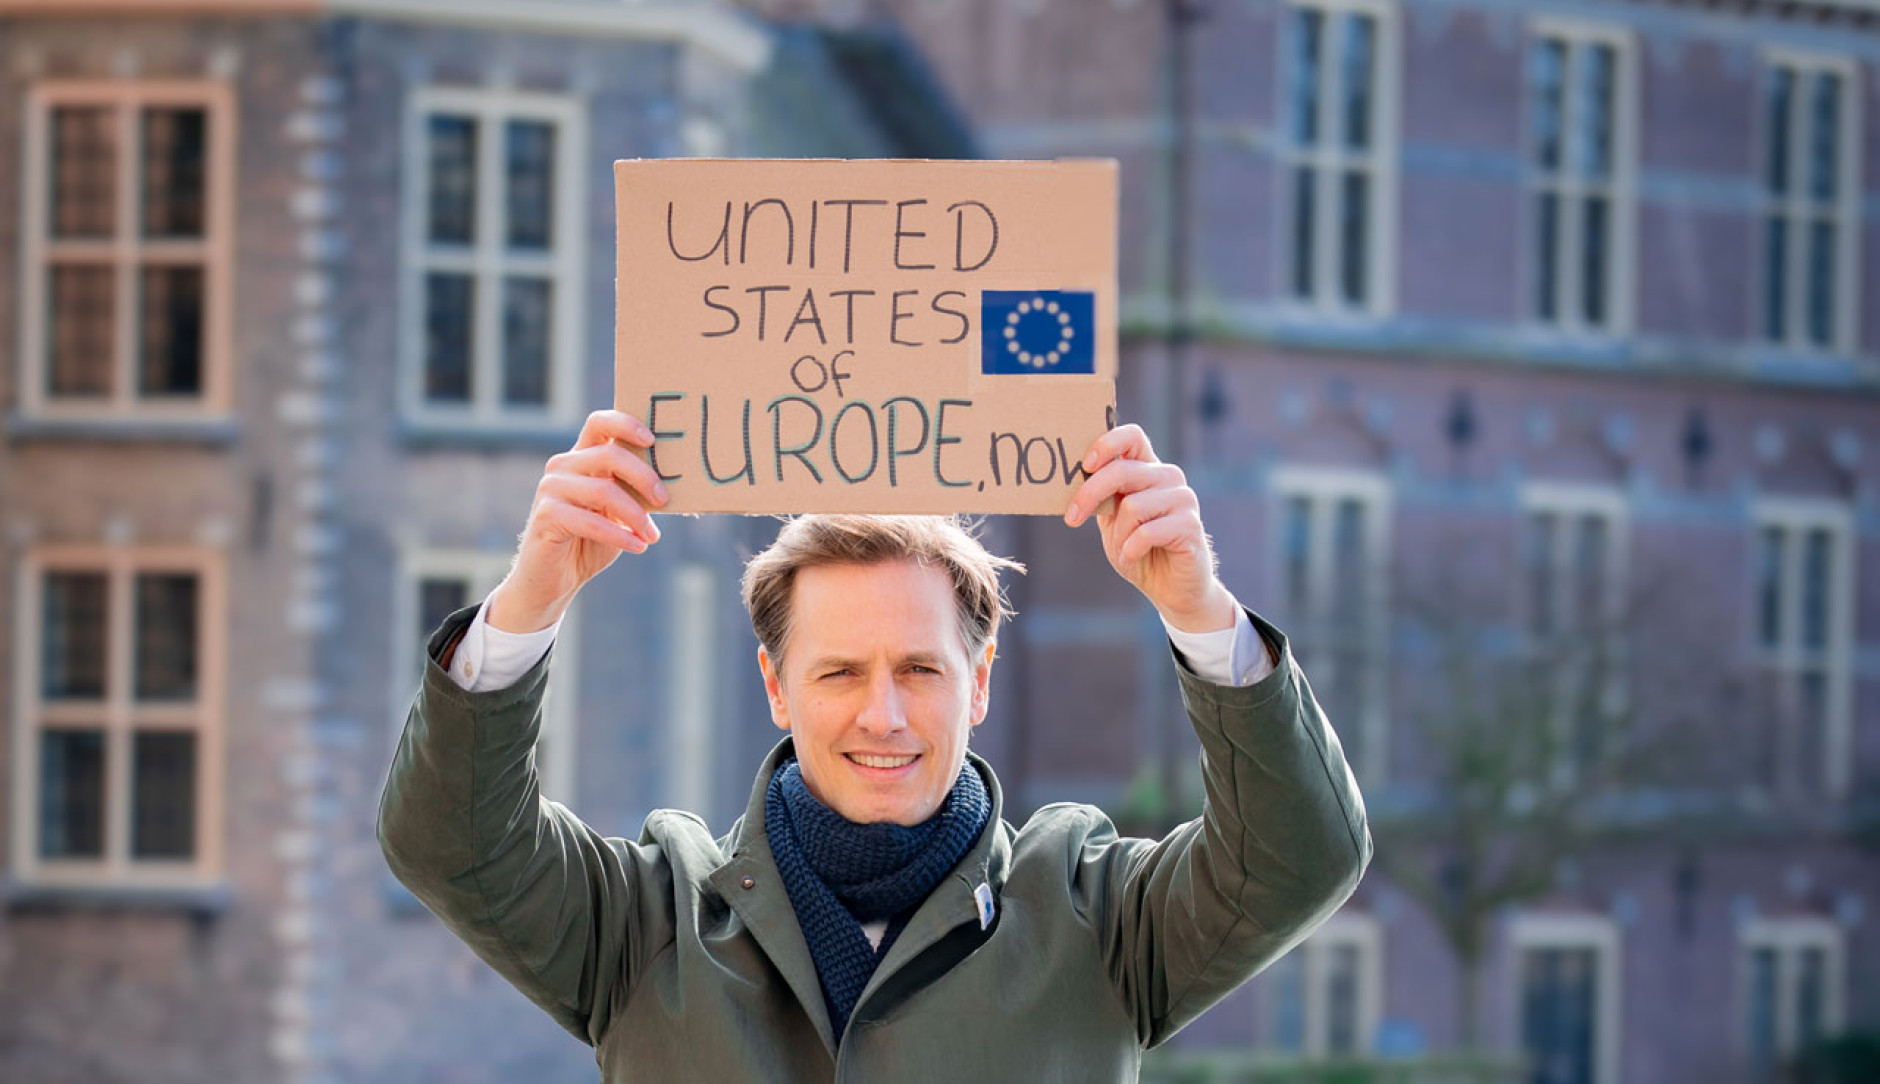 UNITED
STATES
OF
EUROPE, now